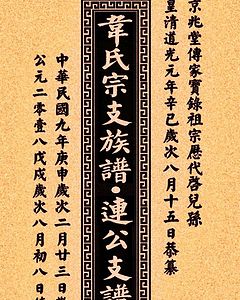 京兆堂傳家寶錄祖宗歷代啓兒孫
皇清道光元年辛巳歲次八月十五日恭纂
韋氏宗支族譜·連公支譜
中華民國九年庚申歲次二月廿三日
公元二零壹八戊戌歲次八月初八日